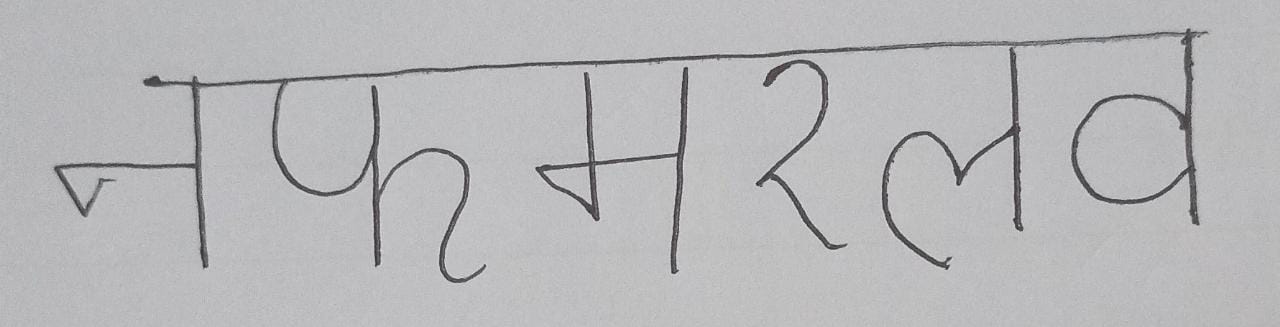 नफमरलव